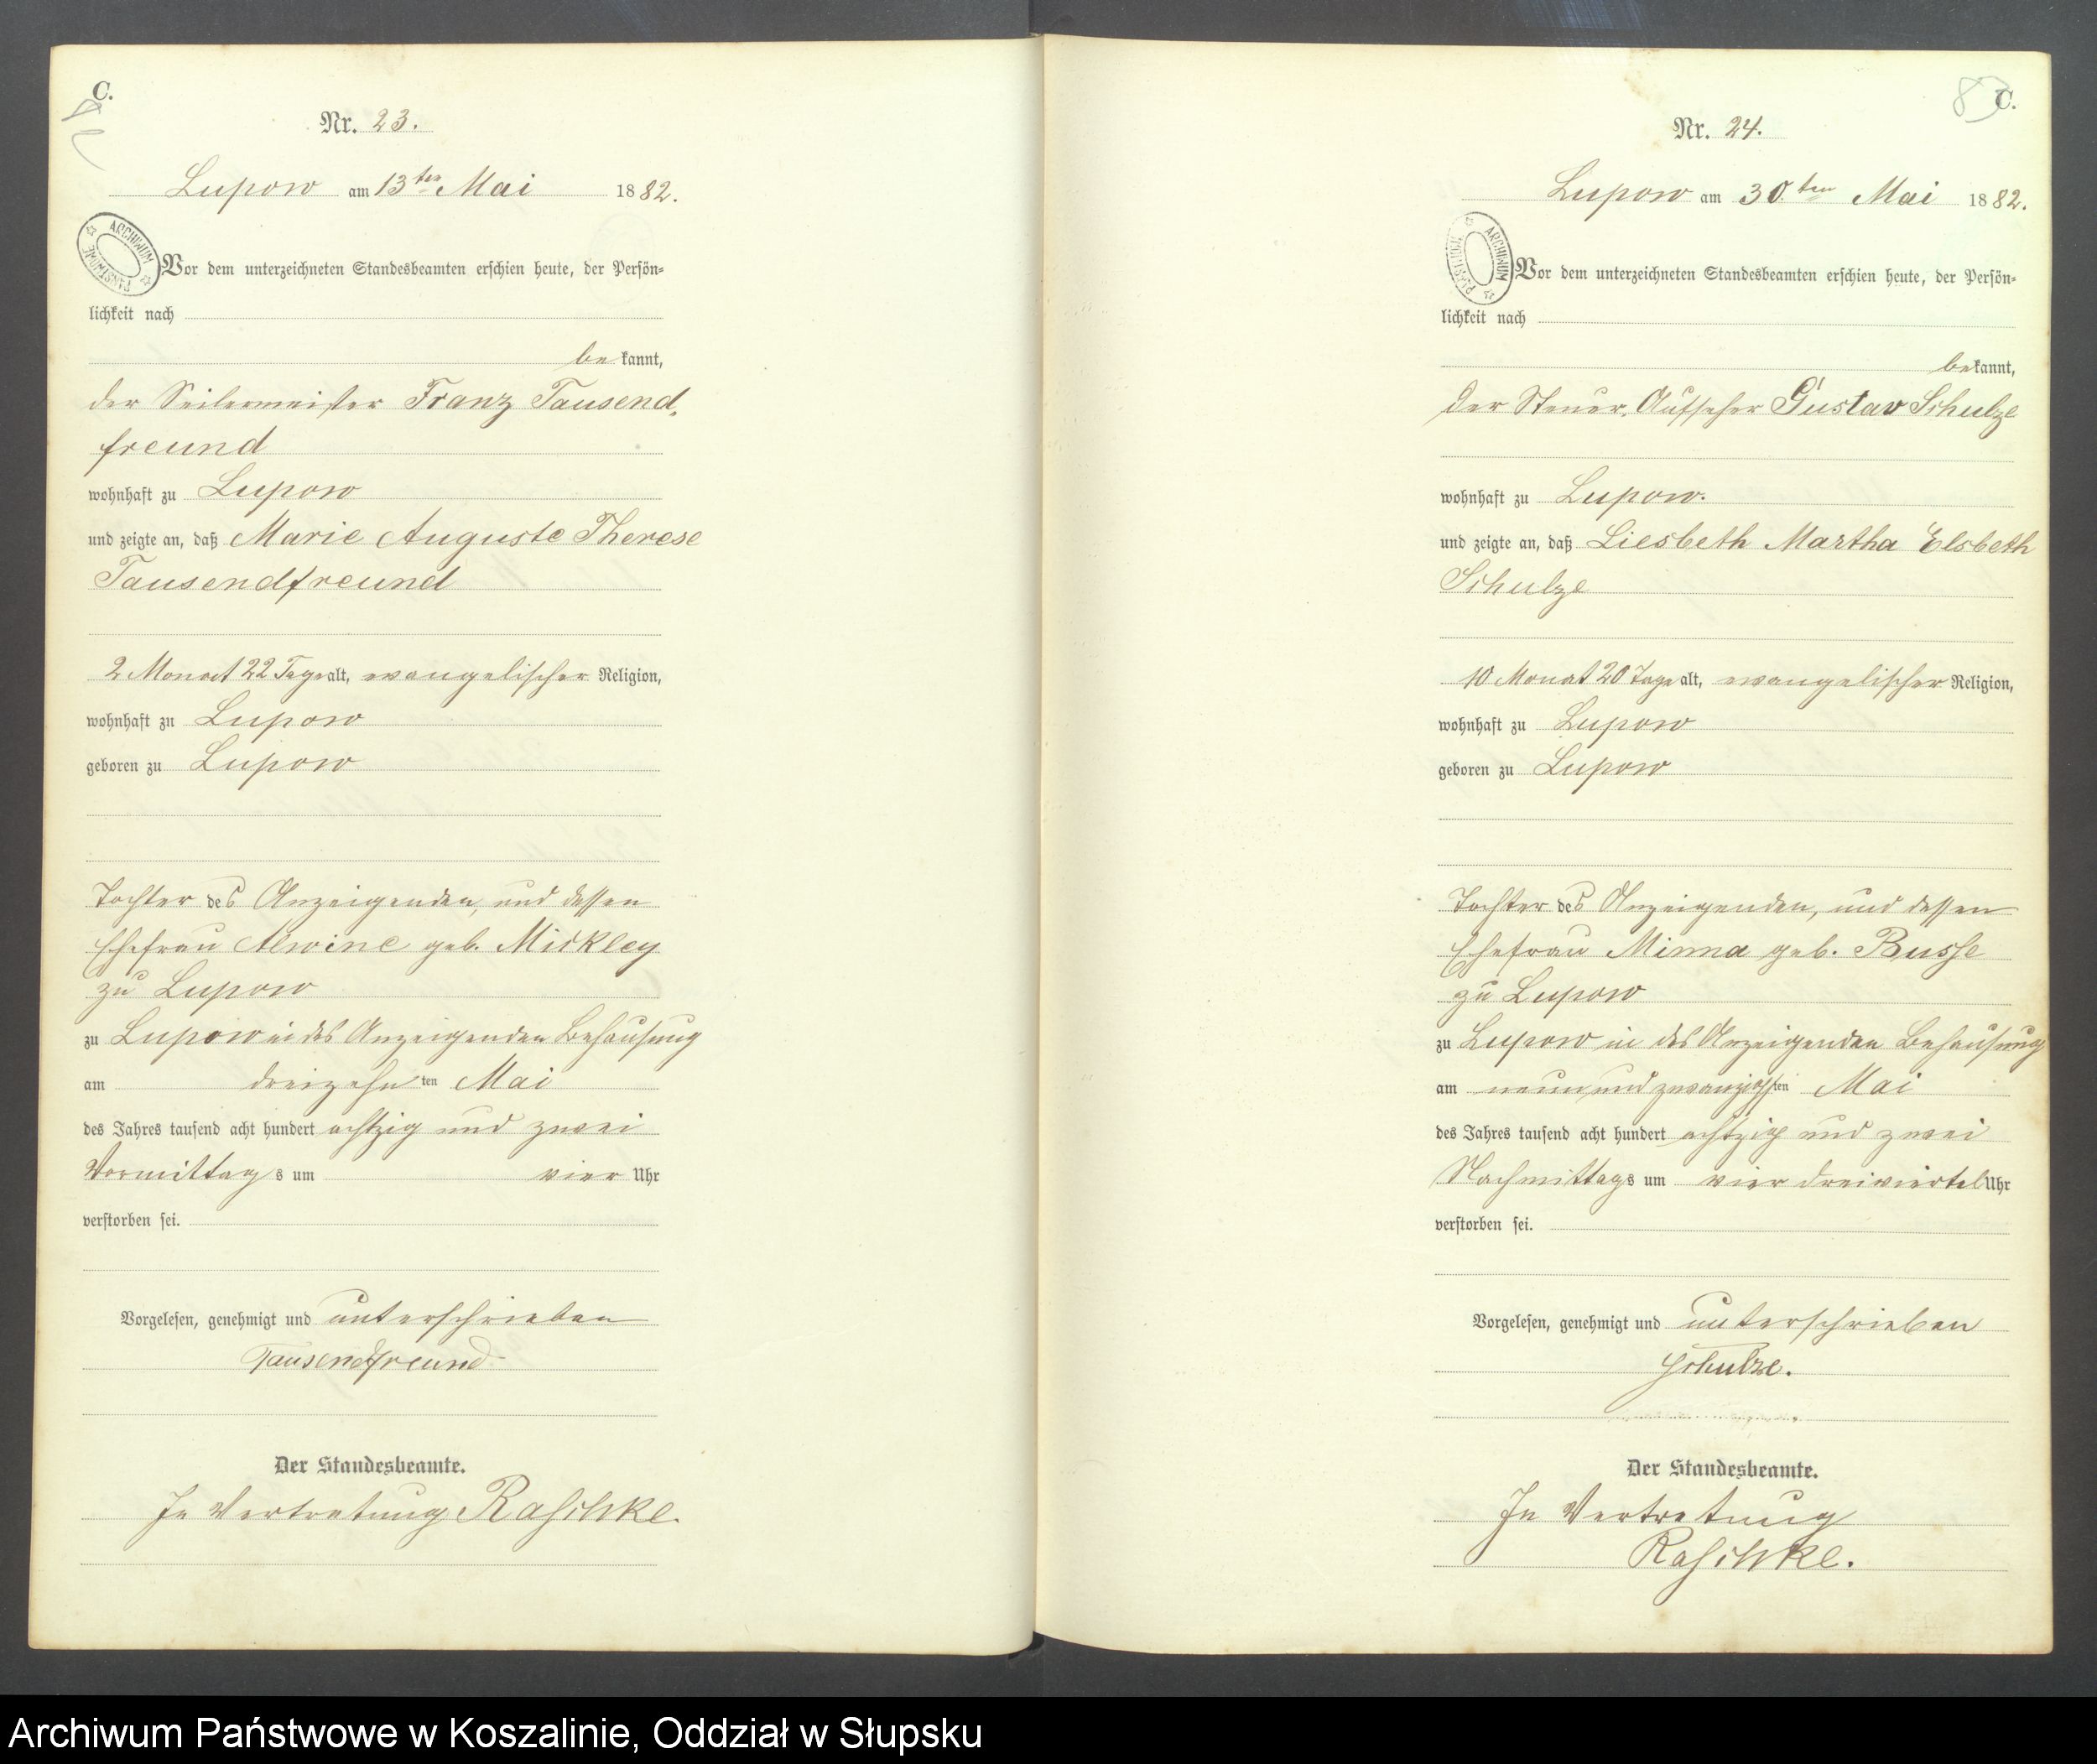 C.
Nr. 23.
Lupow am 13ten Mai 1882.
ARCHIWUM PAŃSTWOWE
Vor dem unterzeichneten Standesbeamten erschien heute, der Persön-
lichkeit nach
bekannt,
der Seilermeister Franz Tausend-
freund
wohnhaft zu Lupow
und zeigte an, daß Marie Auguste Therese
Tausendfreund
2 Monat 22 Tage alt, evangelischer Religion,
wohnhaft zu Lupow
geboren zu Lupow
Tochter des Anzeigenden, und dessen
Ehefrau Alwine geb. Mickley
zu Lupow
zu Lupow in des Anzeigenden Behausung
am dreizehnten Mai
des Jahres tausend acht hundert achtzig und zwei
Vormittags um vier Uhr
verstorben sei.
Vorgelesen, genehmigt und unterschrieben
Tausendfreund
Der Standesbeamte.
In Vertretung Raschke.
C.
Nr. 24.
Lupow am 30.ten Mai 1882.
ARCHIWUM PAŃSTWOWE
Vor dem unterzeichneten Standesbeamten erschien heute, der Persön-
lichkeit nach
bekannt,
Der Steuer-Aufseher Gustav Schulze
wohnhaft zu Lupow.
und zeigte an, daß Liesbeth Martha Elsbeth
Schulze
10 Monat 20 Tage alt, evangelischer Religion,
wohnhaft zu Lupow
geboren zu Lupow
Tochter des Anzeigenden, und dessen
Ehefrau Minna geb. Busse
zu Lupow
zu Lupow in des Anzeigenden Behausung
am neun und zwanzigsten Mai
des Jahres tausend acht hundert achtzig und zwei
Nachmittags um vier dreiviertel Uhr
verstorben sei.
Vorgelesen, genehmigt und unterschrieben
Schulze.
Der Standesbeamte.
In Vertretung
Raschke.
Archiwum Państwowe w Koszalinie, Oddział w Słupsku